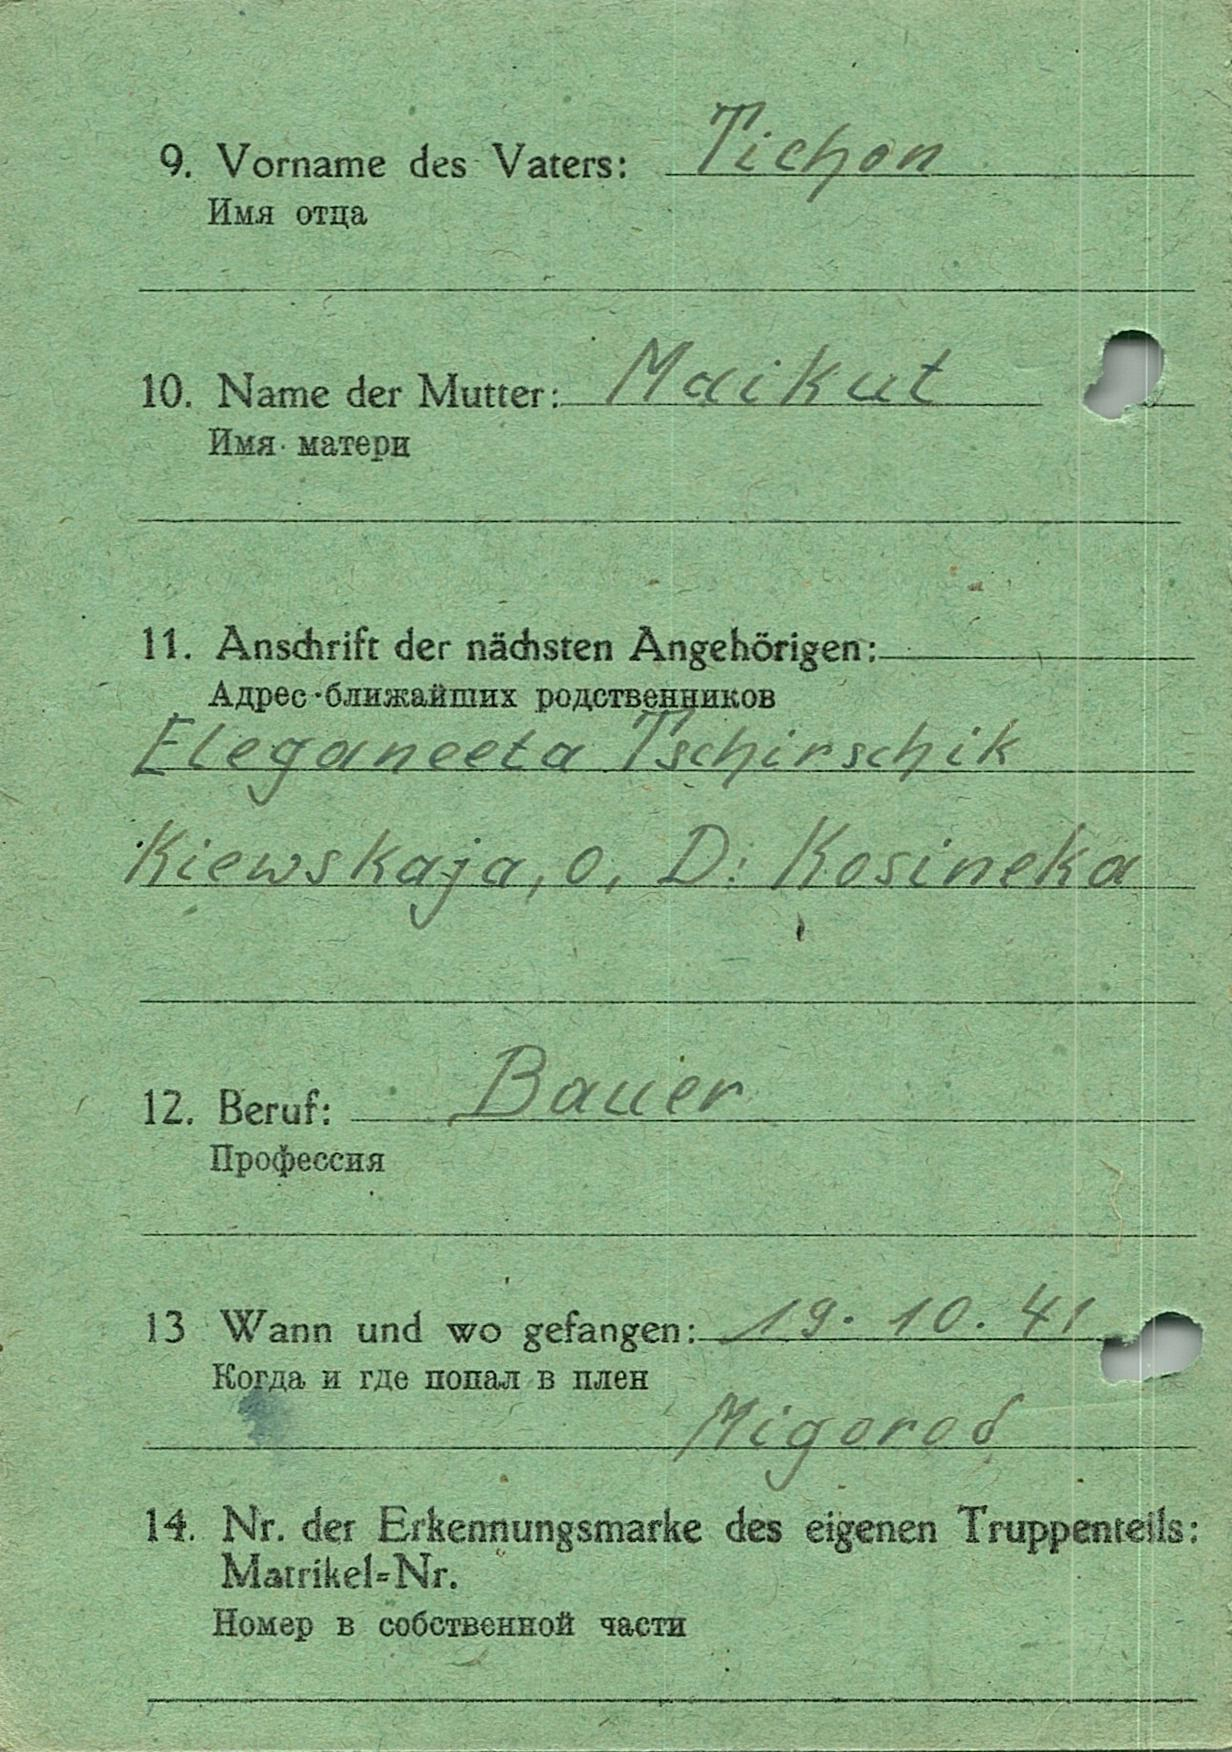 9. Vorname des Vaters: Tichon
Имя отца
10. Name der Mutter: Maikut
Имя матери
11. Anschrift der nächsten Angehörigen:
Адрес ближайших родственников
Eleganeeta Tschirschik
Kiewskaja, o, D: Kosineka
12. Beruf: Bauer
Профессия
13 Wann und wo gefangen: 19. 10. 41
Когда и где попал в плен
Migorod
14. Nr. der Erkennungsmarke des eigenen Truppenteils:
Matrikel-Nr.
Номер в собственной части